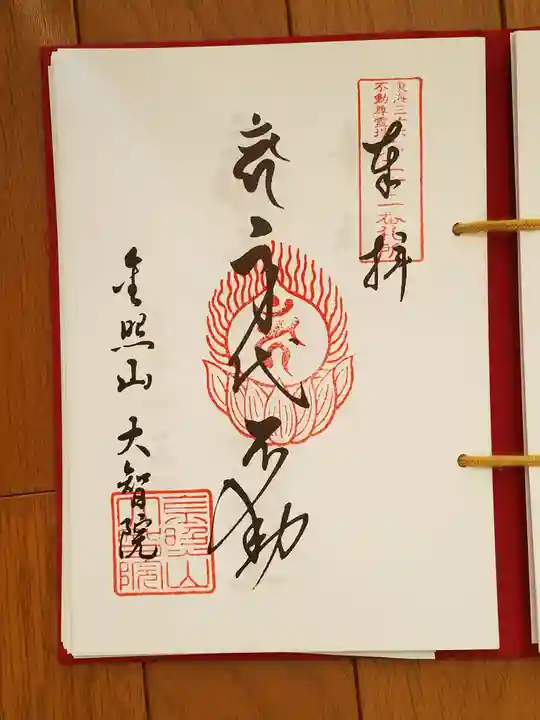 東海三
不動尊霊場
一番札所
奉拝
身代不動
金照山 大智院
金照山
大智院